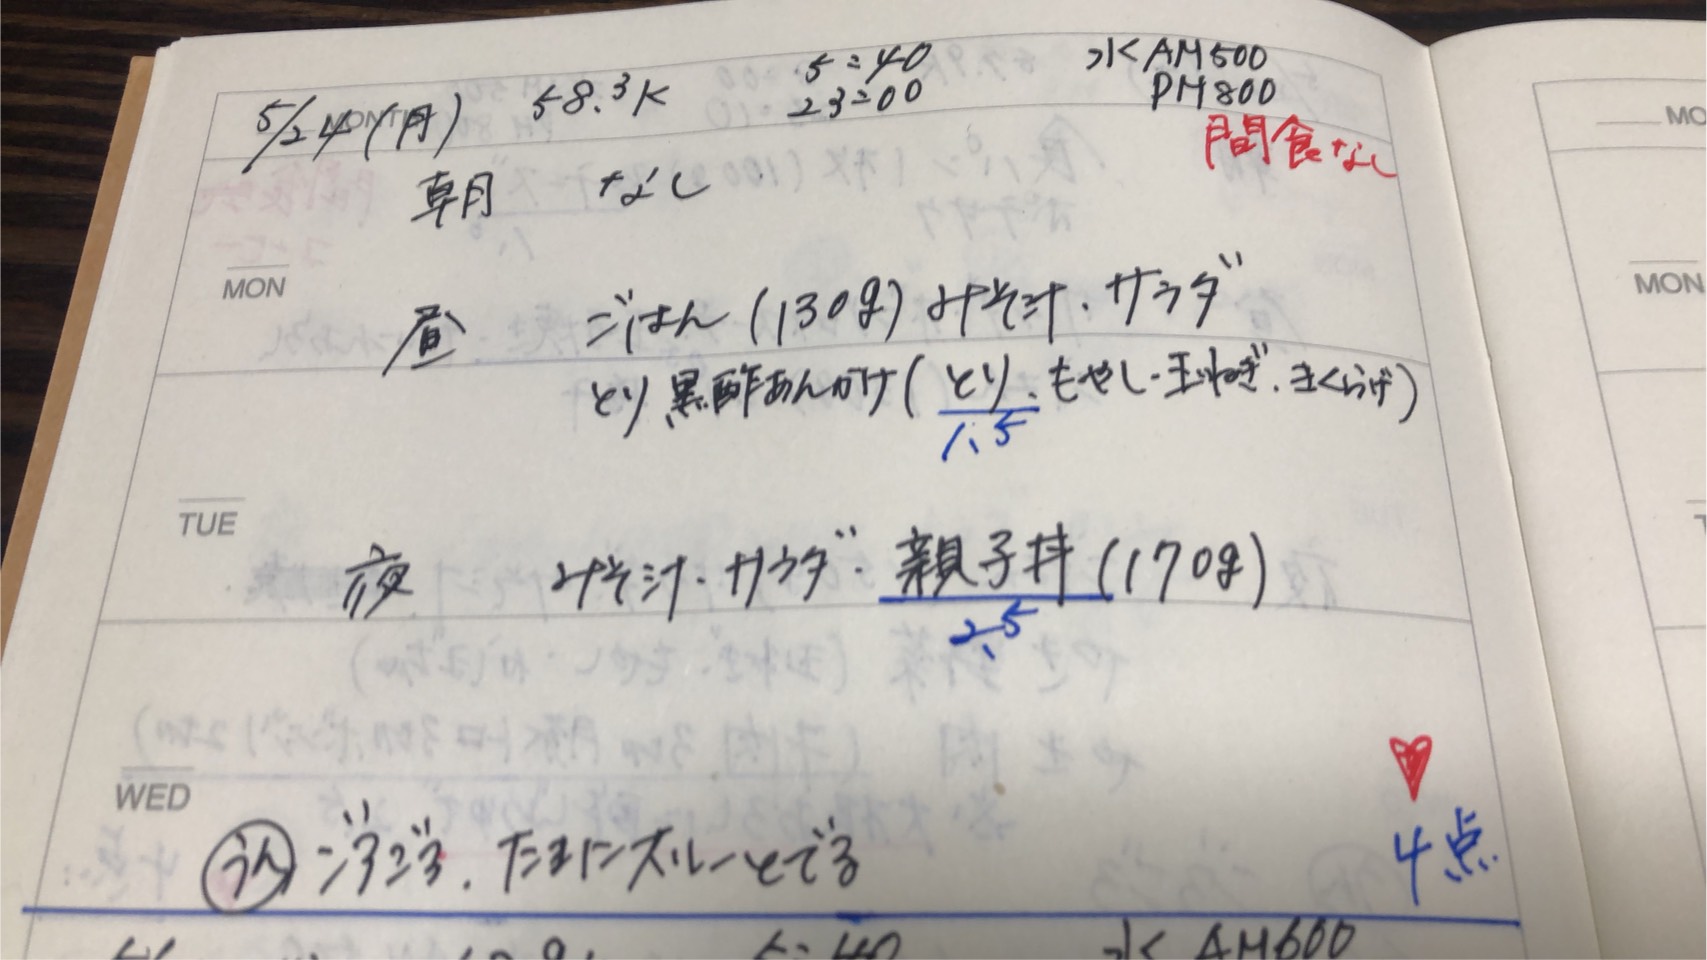 5/24(月) 58.3K 5:40 水 AM500
23:00 PM800
MONTH
間食なし
朝 なし
MON
昼 ごはん(130g)みそ汁・サラダ
とり黒酢あんかけ(とり、もやし・玉ねぎ・きくらげ)
1.5
TUE
夜 みそ汁・サラダ・親子丼(170g)
2.5
WED
うん ゴロゴロ、たまにスルーとでる
4点
5:40 水 AM600
MON